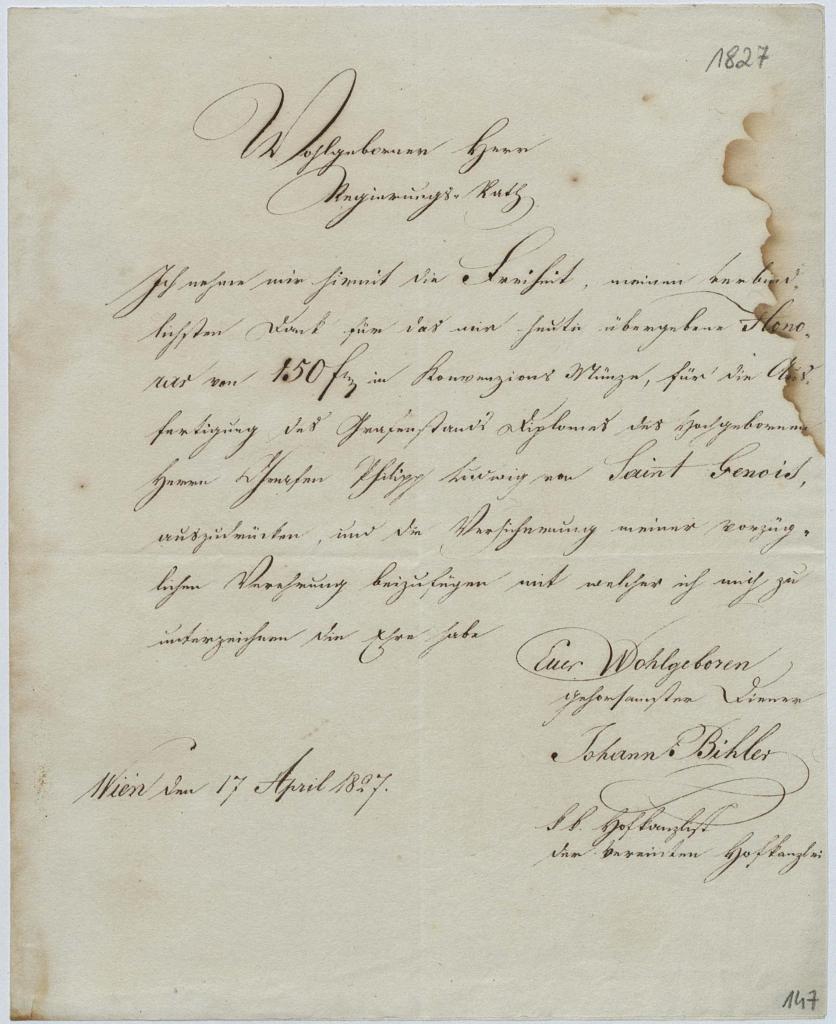 1827
Wohlgeborner Herr
Regierungs-Rath
Ich nehme mir hiemit die Freiheit, meinen verbind-
lichsten Dank für das mir heute übergebene Hono-
rar von 150 f in Konvenzions Münze, für die Aus-
fertigung des Grafenstands Diplomes des Hochgebornen
Herrn Grafen Philipp Ludwig von Saint Genois,
auszudrücken, und die Versicherung meiner vorzüg-
lichen Verehrung beizufügen mit welcher ich mich zu
unterzeichnen die Ehre habe
Euer Wohlgeboren
gehorsamster Diener
Johann Bihler
k k. Hofkanzlist
der vereinten Hofkanzlei
Wien den 17 April 1827.
147